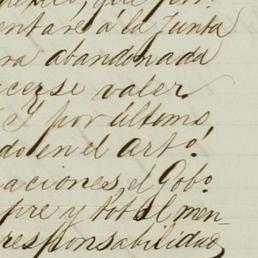 entare á la Junta
ra abandonada
cerse valer.
Y por último,
do en el arto!
aciones el Gobo.
pre y total men-
responsabilidad,